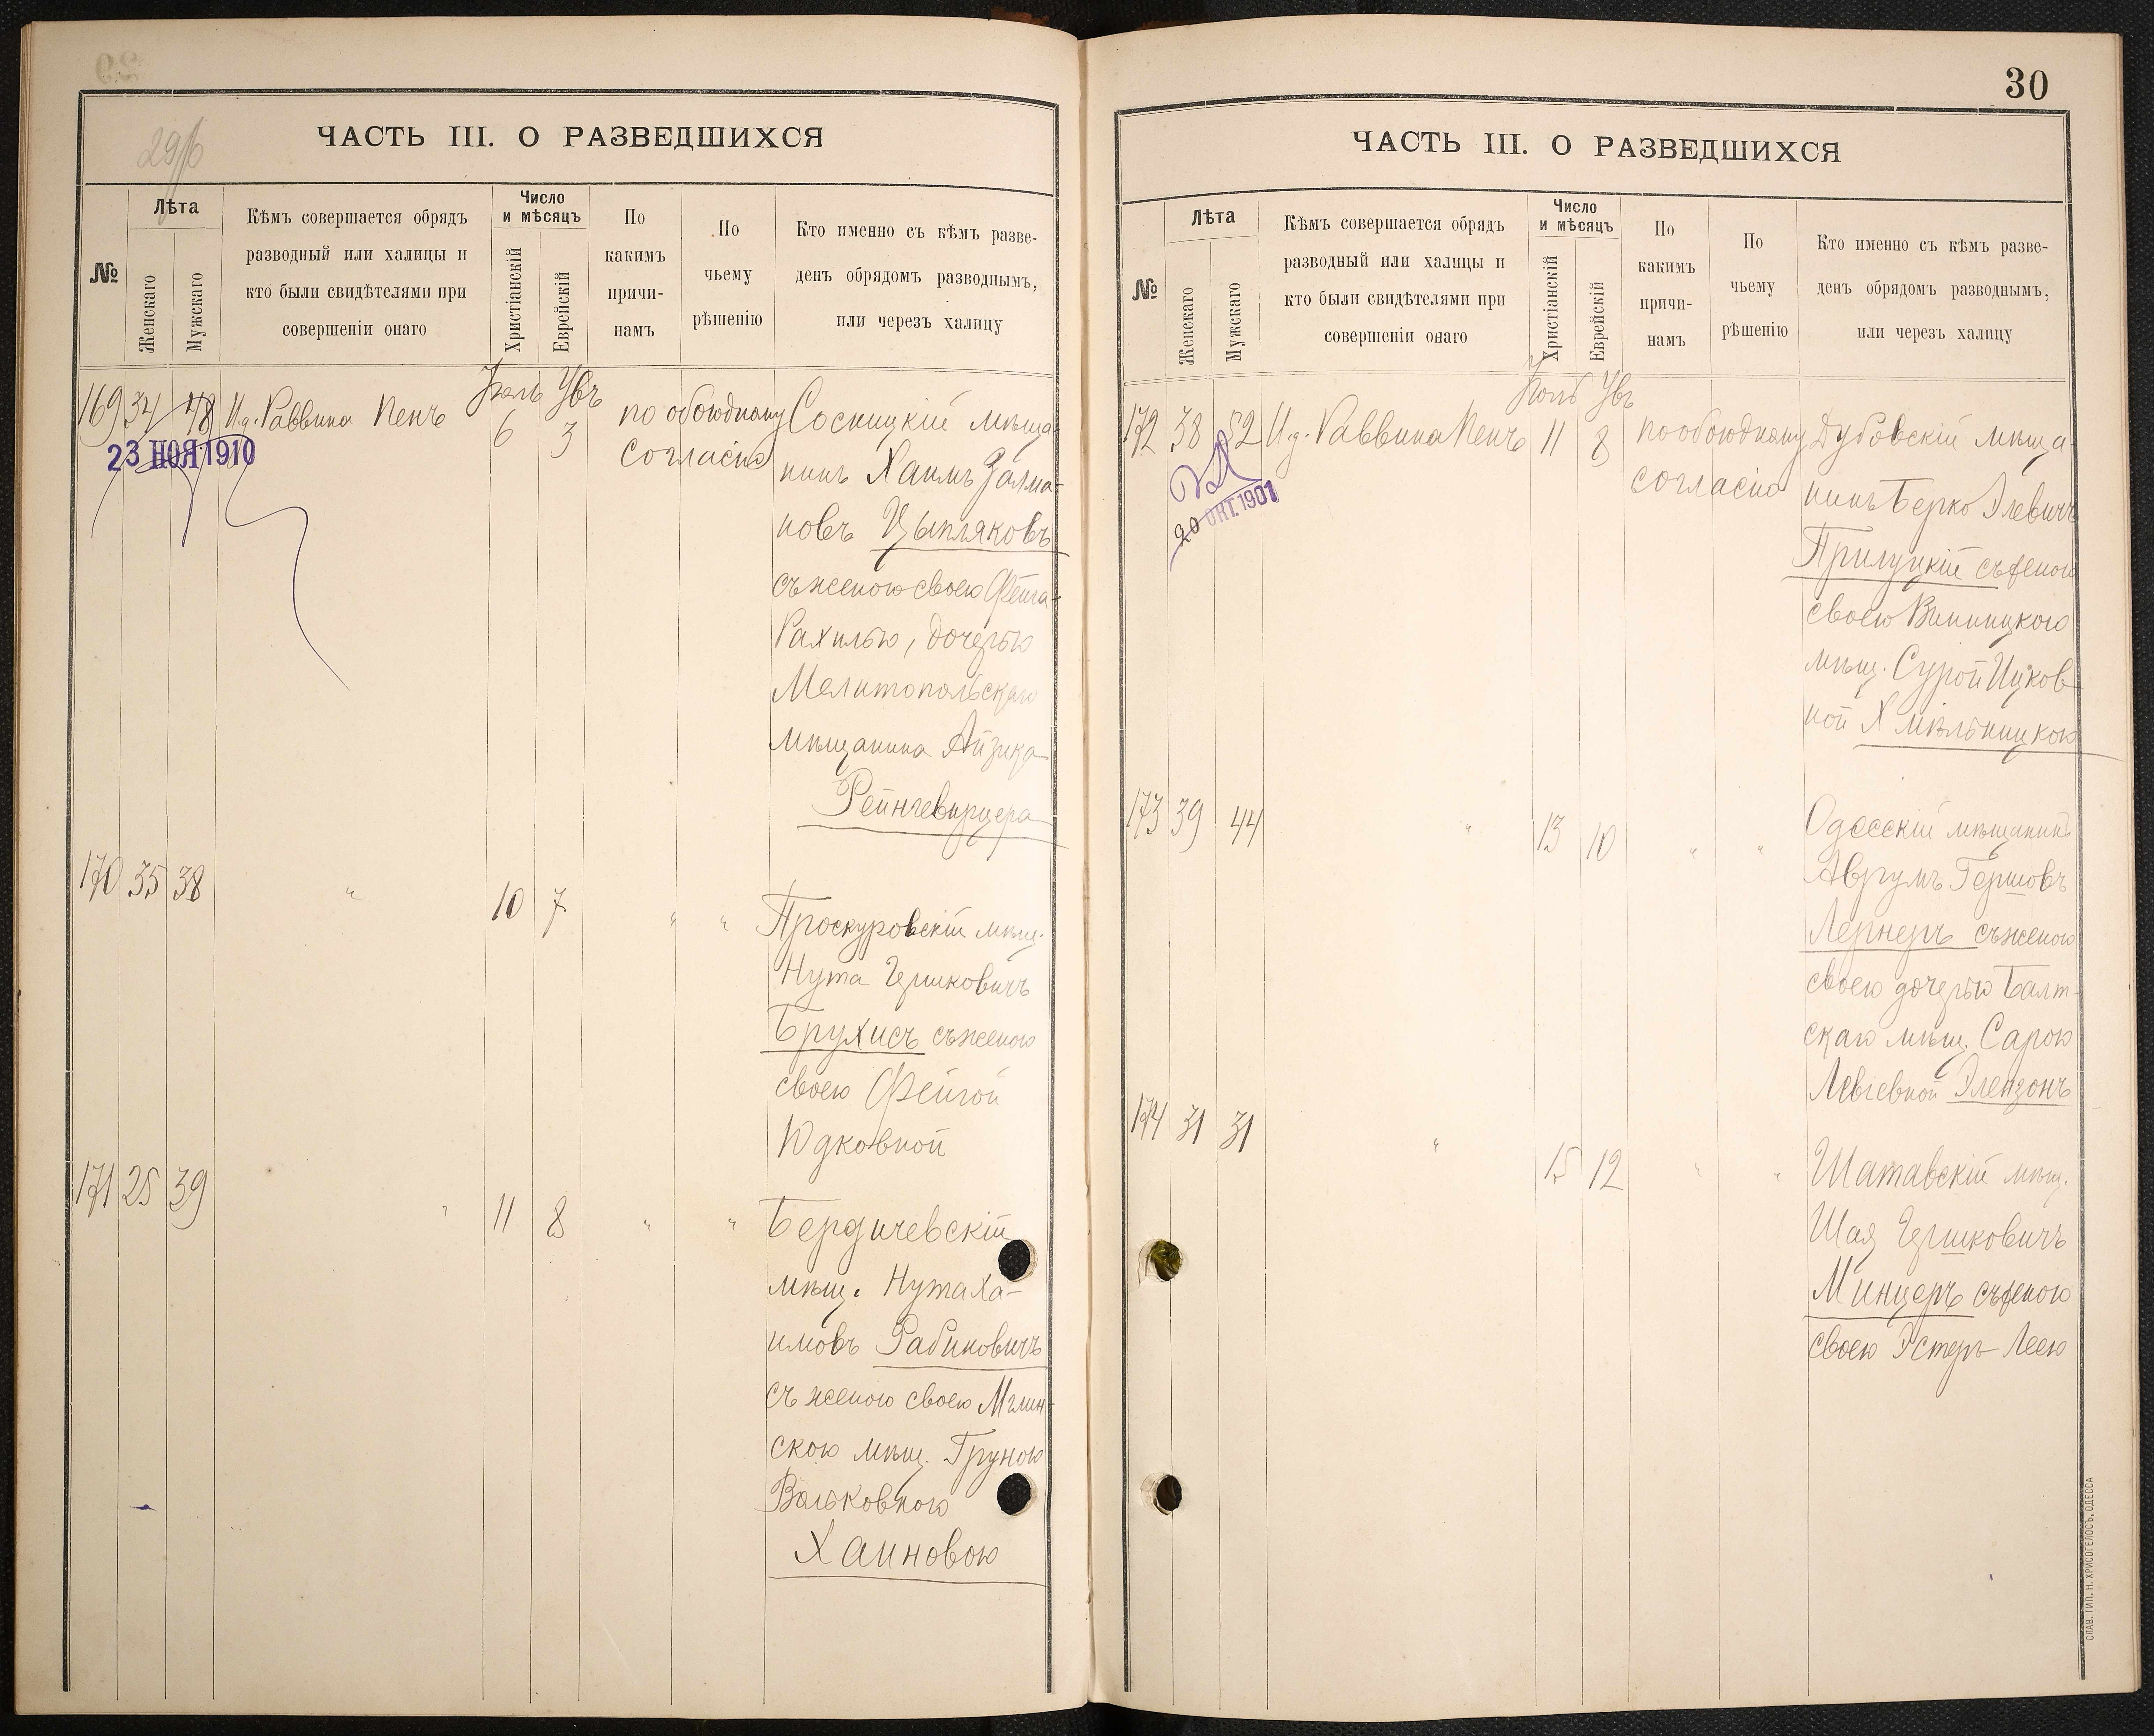 ЧАСТЬ III. О РАЗВЕДШИХСЯ
№
Лѣта
Женскаго
Мужскаго
Кѣмъ совершается обрядъ
разводный или халицы и
кто были свидѣтелями при
совершеніи онаго
Число
и мѣсяцъ
Христіанскій
Еврейскій
По
какимъ
причи-
намъ
По
чьему
рѣшенію
Кто именно съ кѣмъ разве-
денъ обрядомъ разводнымъ,
или через халицу
169 34 48 И.д. Раввина Пенъ
23 НОЯ 1910
6 3
по обоюдному
согласію
Сосницкій мѣща-
нинъ Хаимъ Залма-
новъ Цыпляковъ
съ женою своею Фейга-
Рахилью, дочерью
Мелитопольскаго
мѣщанина Айзика
Рейнгевирцера
170 35 38 " 10 7 " "
Проскуровскій мѣщ.
Нута Гершковичъ
Брухисъ съ женою
своею Фейгой
Юдковной
171 25 39 " 11 8 " "
Бердичевскій
мѣщ. Нута Ха-
имовъ Рабиновичъ
съ женою своею Мглин-
скою мѣщ. Груною
Вольковною
Хаиновою
30
ЧАСТЬ III. О РАЗВЕДШИХСЯ
№
Лѣта
Женскаго
Мужскаго
Кѣмъ совершается обрядъ
разводный или халицы и
кто были свидѣтелями при
совершеніи онаго
Число
и мѣсяцъ
Христіанскій
Еврейскій
По
какимъ
причи-
намъ
По
чьему
рѣшенію
Кто именно съ кѣмъ разве-
денъ обрядомъ разводнымъ,
или через халицу
172 38 52 И.д. Раввина Пенъ 11 8
20 ОКТ. 1901
по обоюдному
согласію
Дубовскій мѣща-
нинъ Берко Элевичъ
Прилуцкій съ женою
своею Винницкою
мѣщ. Сурой Ицков-
ной Хмѣльницкою
173 39 44 " 13 10 " "
Одесскій мѣщанинъ
Аврумъ Гершовъ
Лернеръ съ женою
своею дочерью Балт-
скаго мѣщ. Сарою
Левіевной Элензонъ
174 31 31 " 15 12 " "
Шатавскій мѣщ.
Шая Гершковичъ
Минцеръ съ женою
своею Эстеръ-Леею
СЛАВ. ТИП. Н. ХРИСОГЕЛОСЪ, ОДЕССА